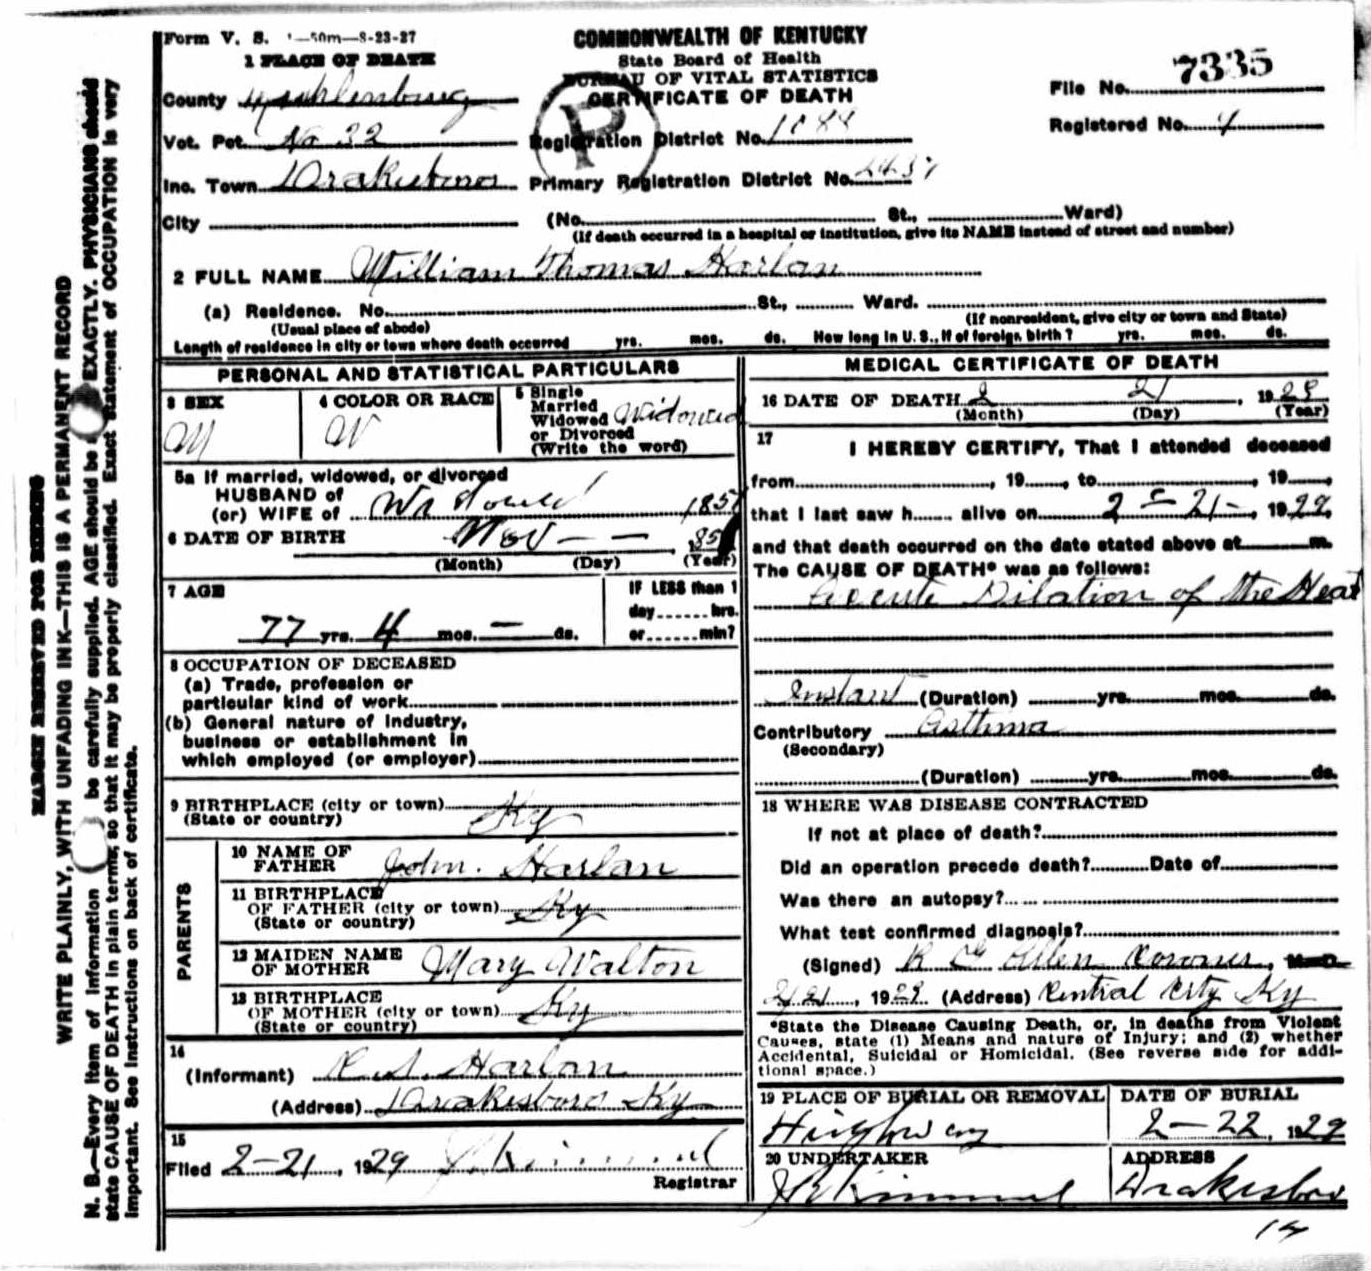 Form V. S. 1—50m—8-23-27
COMMONWEALTH OF KENTUCKY
State Board of Health
BUREAU OF VITAL STATISTICS
CERTIFICATE OF DEATH
File No. 7335
Registered No. 4
1 PLACE OF DEATH
County Muhlenburg
Vot. Pct. No 32
Registration District No. 1088
Inc. Town Drakesboro
Primary Registration District No. 2437
City
(No. St., Ward)
(If death occurred in a hospital or institution, give its NAME instead of street and number)
P
2 FULL NAME William Thomas Harlan
(a) Residence. No. St., Ward.
(Usual place of abode)
(If nonresident, give city or town and State)
Length of residence in city or town where death occurred yrs. mos. ds. How long in U. S., if of foreign birth? yrs. mos. ds.
PERSONAL AND STATISTICAL PARTICULARS
3 SEX
M
4 COLOR OR RACE
W
5 Single
Married
Widowed
or Divorced
(Write the word)
Widowed
5a If married, widowed, or divorced
HUSBAND of
(or) WIFE of Widowed
1851
6 DATE OF BIRTH Nov — — , 85
(Month) (Day) (Year)
7 AGE
77 yrs. 4 mos. — ds.
IF LESS than 1
day hrs.
or min?
8 OCCUPATION OF DECEASED
(a) Trade, profession or
particular kind of work
(b) General nature of industry,
business or establishment in
which employed (or employer)
9 BIRTHPLACE (city or town)
(State or country)
Ky
PARENTS
10 NAME OF
FATHER John. Harlan
11 BIRTHPLACE
OF FATHER (city or town) Ky
(State or country)
12 MAIDEN NAME
OF MOTHER Mary Walton
13 BIRTHPLACE
OF MOTHER (city or town) Ky
(State or country)
14
(Informant) R. S. Harlan
(Address) Drakesboro Ky
15
Filed 2-21, 1929
Registrar
MEDICAL CERTIFICATE OF DEATH
16 DATE OF DEATH 2 21, 1929
(Month) (Day) (Year)
17
I HEREBY CERTIFY, That I attended deceased
from , 19 , to , 19 ,
that I last saw h alive on 2 - 21-, 1929,
and that death occurred on the date stated above at m.
The CAUSE OF DEATH* was as follows:
Accute Dilation of the Heat
Instant (Duration) yrs. mos. ds.
Contributory Asthma
(Secondary)
(Duration) yrs. mos. ds.
18 WHERE WAS DISEASE CONTRACTED
If not at place of death?
Did an operation precede death? Date of
Was there an autopsy?
What test confirmed diagnosis?
(Signed) Allen Coroner, M. D.
2/21, 1929 (Address) Central City Ky
*State the Disease Causing Death, or, in deaths from Violent
Causes, state (1) Means and nature of Injury; and (2) whether
Accidental, Suicidal or Homicidal. (See reverse side for addi-
tional space.)
19 PLACE OF BURIAL OR REMOVAL
Highway
DATE OF BURIAL
2—22, 1929
20 UNDERTAKER
J R Kimmel
ADDRESS
Drakesboro
14
MARGIN RESERVED FOR BINDING
WRITE PLAINLY, WITH UNFADING INK—THIS IS A PERMANENT RECORD
N. B.—Every item of information be carefully supplied. AGE should be EXACTLY. PHYSICIANS should
state CAUSE OF DEATH in plain terms, so that it may be properly classified. Exact statement of OCCUPATION is very
important. See instructions on back of certificate.